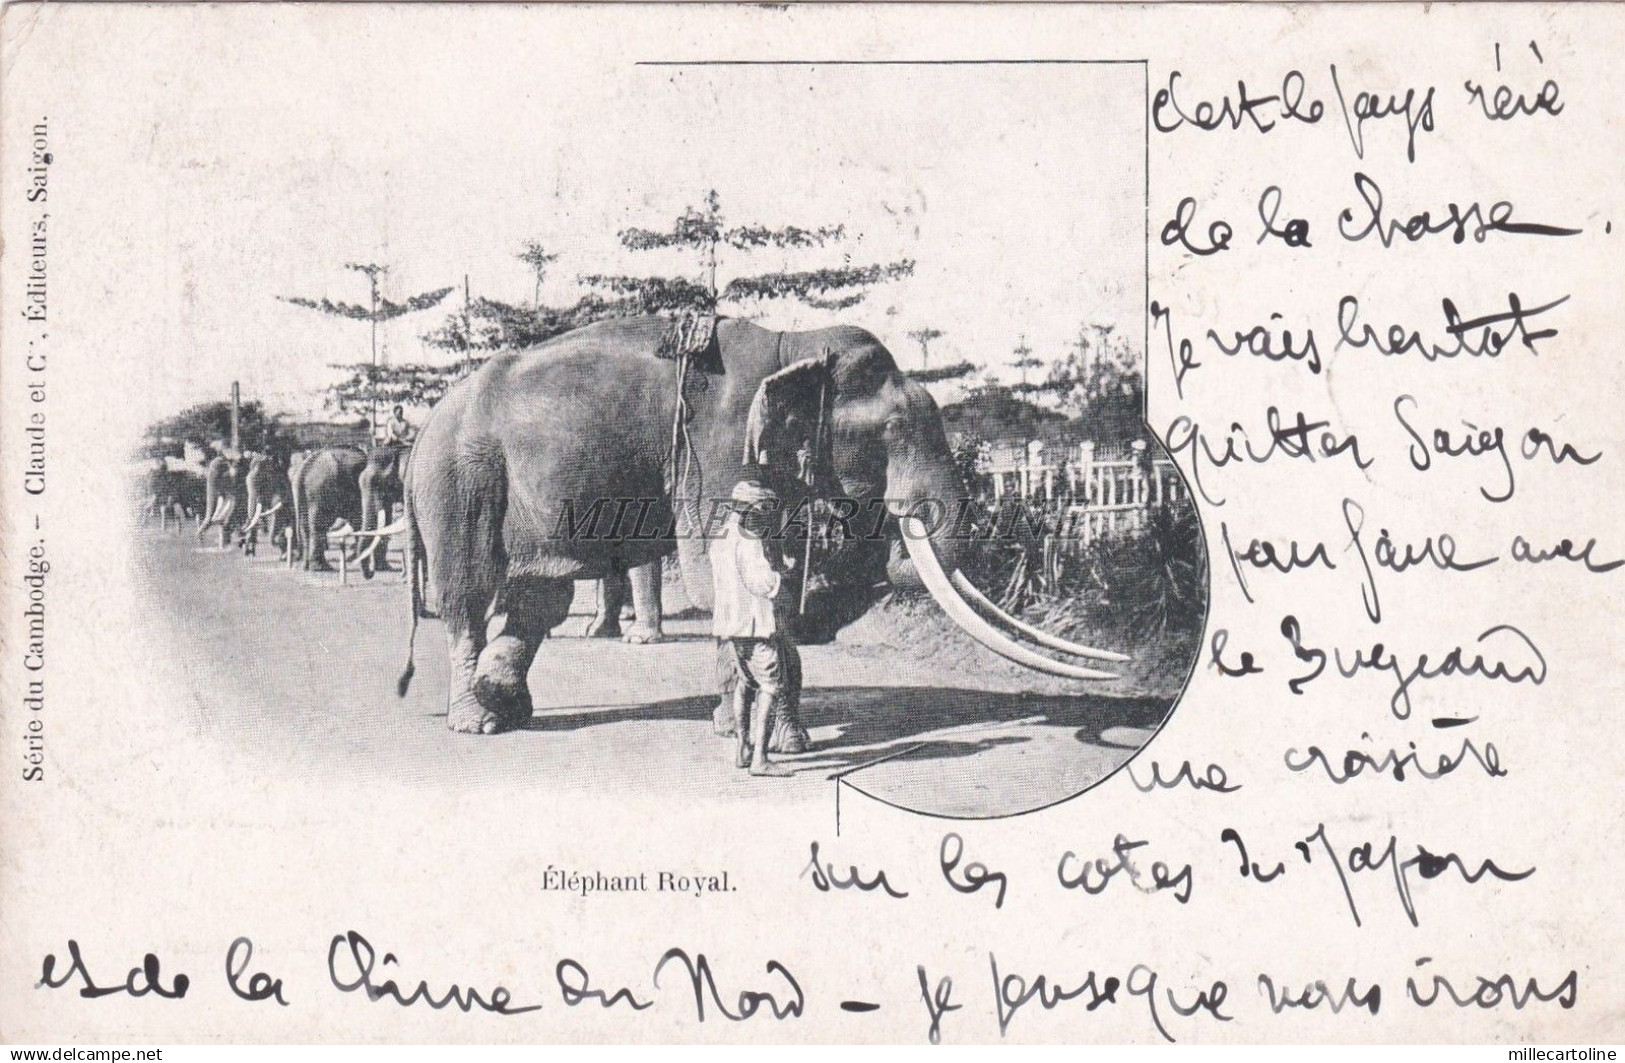 Série du Cambodge. — Claude et Cie, Éditeurs, Saigon.
c'est le pays rêvé
de la chasse.
Je vais bientot
quitter Saigon
pour faire avec
le Bugeaud
une croisière
sur les cotes du Japon
et de la Chine du Nord — je pense que nous irons
Éléphant Royal.
MILLECARTOLINE
delcampe.net
millecartoline